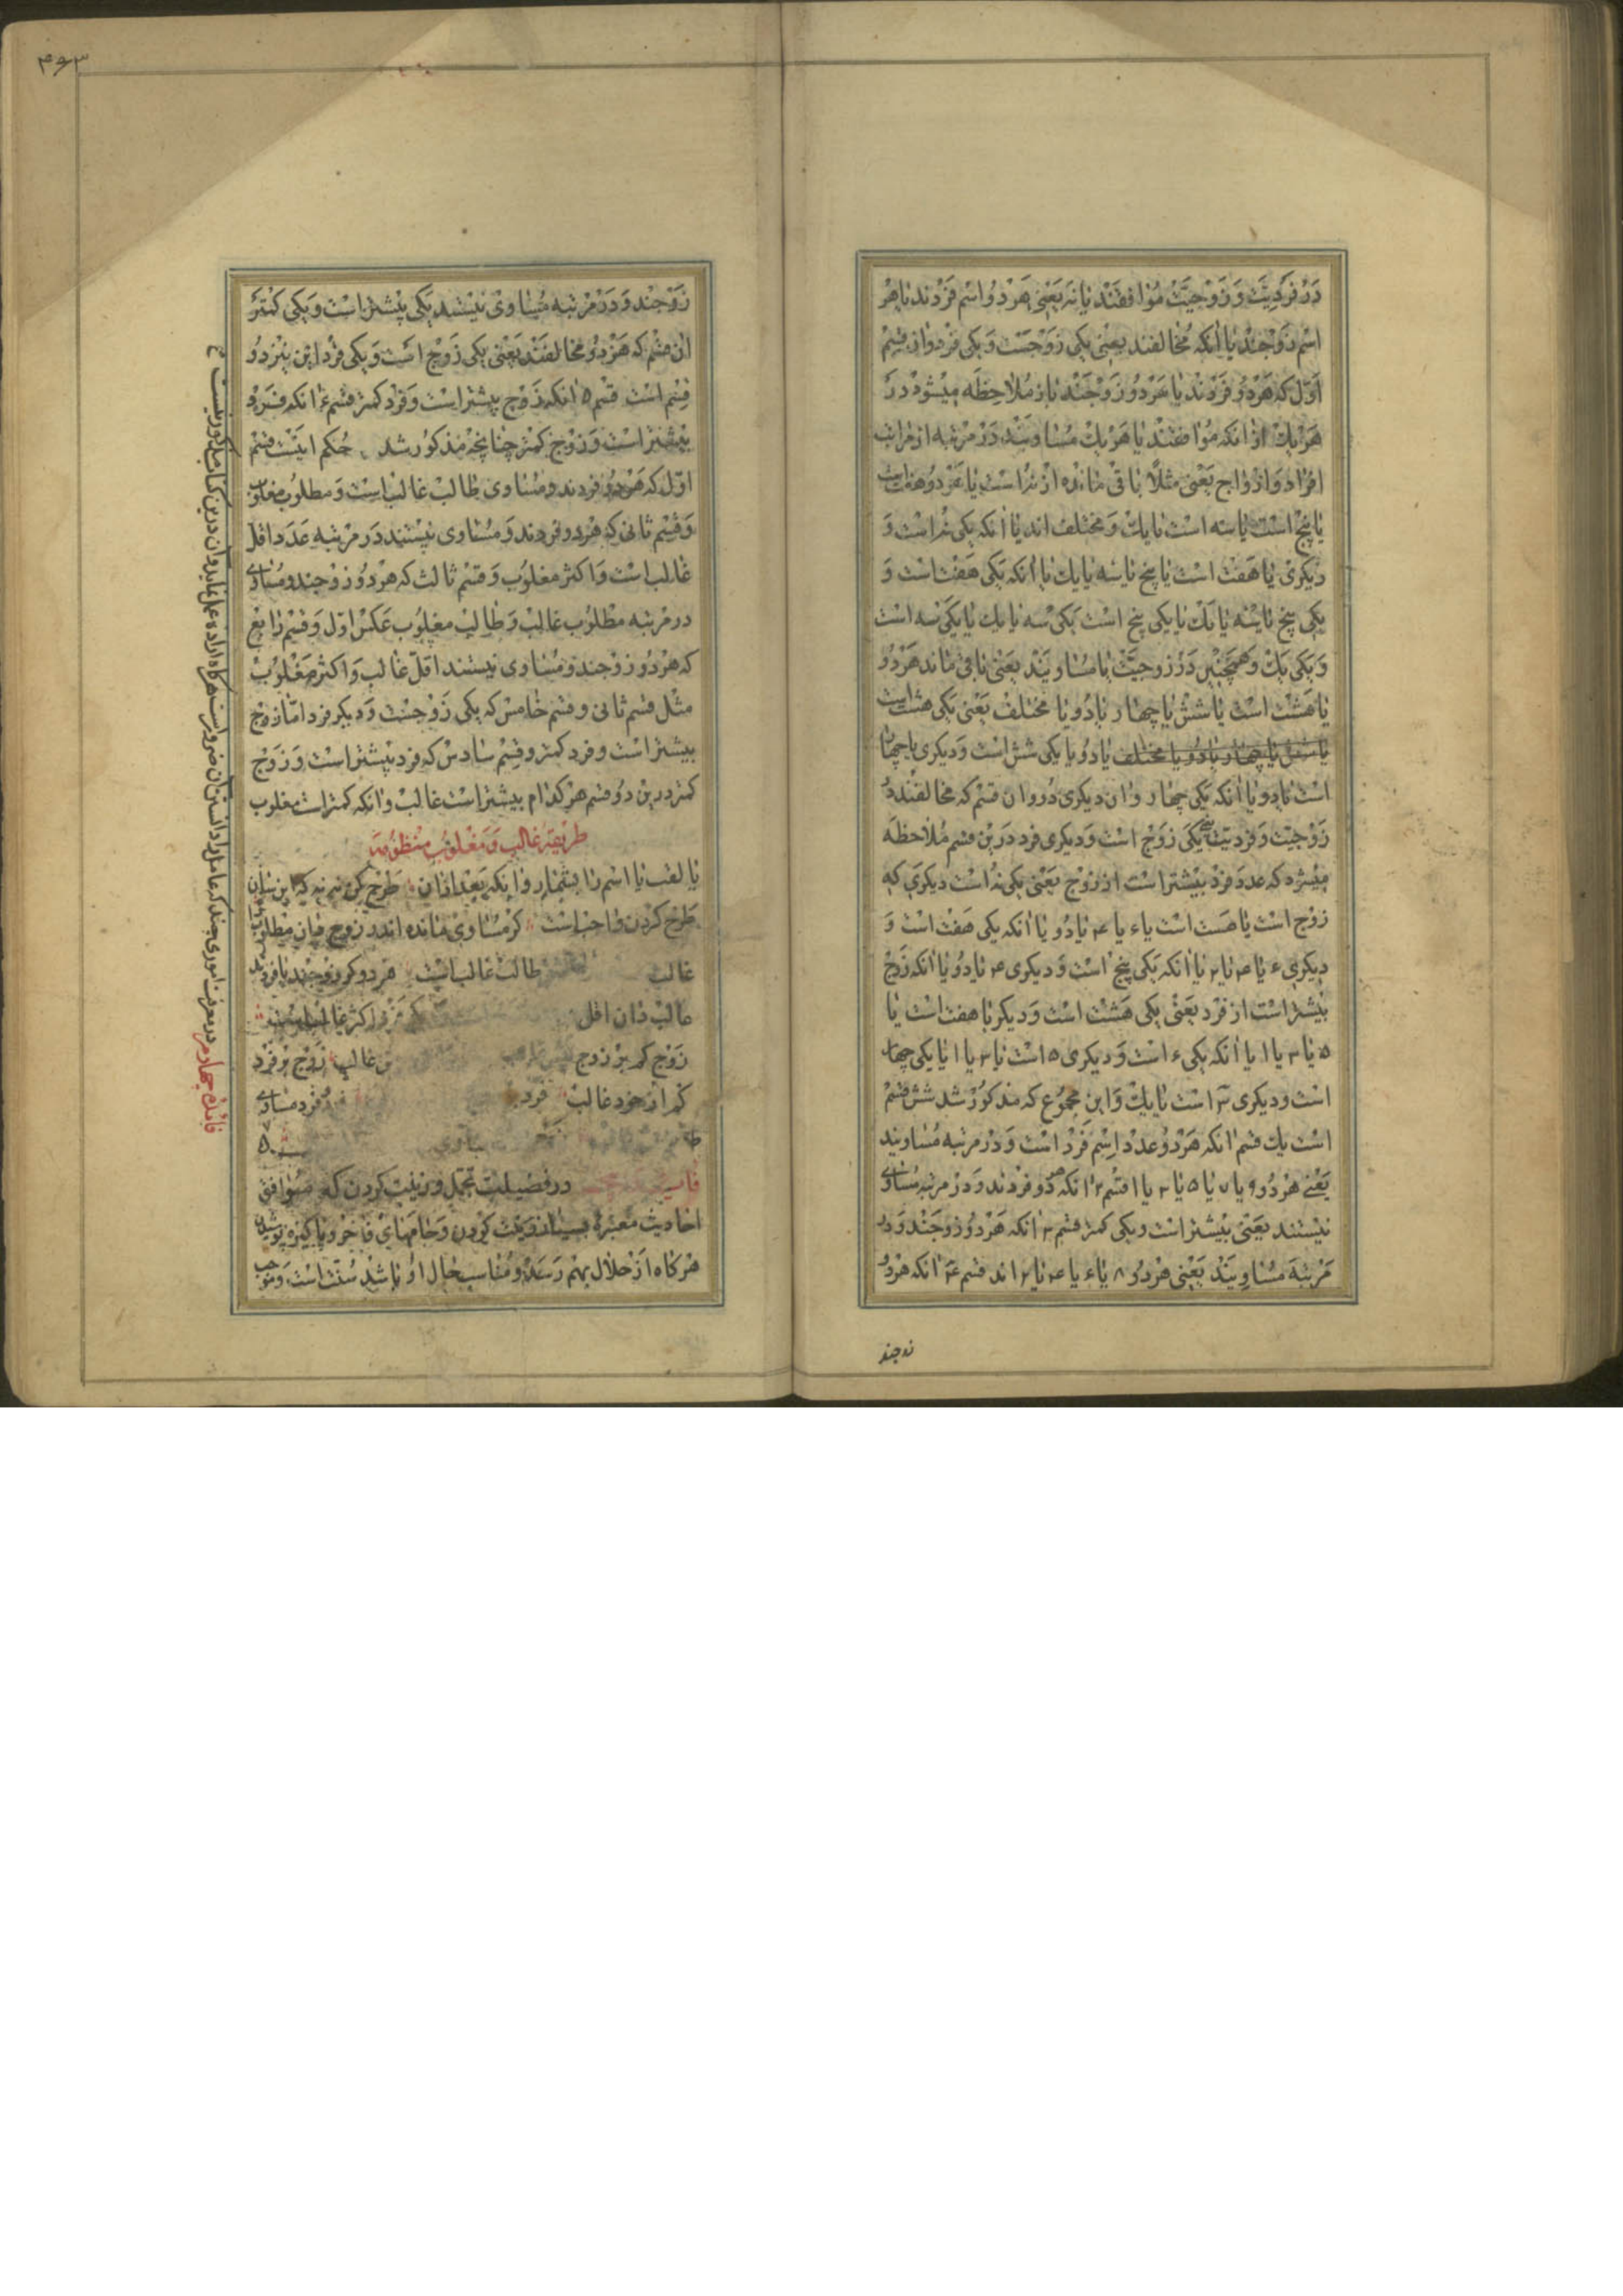 در فردیت و زوجیت موافقند یا نه یعنی هر دو اسم فردند یا هر
اسم زوجند یا انکه مخالفند یعنی یکی زوجست و یکی فرد و از قسم
اول که هر دو فردند یا هر دو زوجند باز ملاحظه میشود در
هر یک از انکه موافقند یا هر یک مساویند در مرتبه از مراتب
افراد و ازواج یعنی مثلاً باقی مانده از نه است یا هر دو هفت است
یا پنج است یا سه است یا یک و مختلف اند یا انکه یکی نه است و
دیگری یا هفت است یا پنج یا سه یا یک یا انکه یکی هفت است و
یکی پنج یا سه یا یک یا یکی پنج است یکی سه یا یک یا یکی سه است
و یکی یک و همچنین در زوجیت یا مساویند یعنی باقی ماند هر دو
یا هشت است یا شش یا چهار یا دو یا مختلف یعنی یکی هشت است
یا شش یا چهار یا دو یا مختلف یا دو یا یکی شش است و دیگری یا چهار
است یا دو یا انکه یکی چهار و ان دیگری دو و ان قسم که مخالفند در
زوجیت و فردیت یعنی یکی زوج است و دیگری فرد درین قسم ملاحظه
میشود که عدد فرد بیشتر است از زوج یعنی یکی نه است دیگری که
زوج است یا هست است یا ء یا ۴ یا دو یا انکه یکی هفت است و
دیگری ء یا ۴ یا ۲ یا انکه یکی پنج است و دیگری ۴ یا دو یا انکه زوج
بیشتر است از فرد یعنی یکی هشت است و دیگر یا هفت است یا
۵ یا ۳ یا ۱ یا انکه یکی ء است و دیگری ۵ است یا ۳ یا ۱ یا یکی چهار
است و دیگری ۳ است یا یک و این مجموع که مذکور شد شش قسم
است یک قسم انکه هر دو عدد اسم فرد است و در مرتبه مساویند
یعنی هر دو ۹ یا ۷ یا ۵ یا ۳ یا ۱ قسم ۲ انکه هر دو فردند و در مرتبه مساوی
نیستند یعنی بیشتر است و یکی کمتر قسم ۳ انکه هر دو زوجند و در
مرتبه مساویند یعنی هر دو ۸ یا ء یا ۴ یا ۲ اند قسم ۴ انکه هر دو
زوجند
۴۶۳
زوجند و در مرتبه مساوی نیستند یکی بیشتر است و یکی کمتر
ان قسم که هر دو مخالفند یعنی یکی زوج است و یکی فرد این نیز دو
قسم است قسم ۵ انکه زوج بیشتر است و فرد کمتر قسم ء انکه فرد
بیشتر است و زوج کمتر چنانچه مذکور شد حکم اینست قسم
اول که هر دو فردند و مساوی طالب غالب است و مطلوب مغلوب
و قسم ثانی که هر دو فردند و مساوی نیستند در مرتبه عدد اقل
غالب است و اکثر مغلوب و قسم ثالث که هر دو زوجند و مساوی
در مرتبه مطلوب غالب و طالب مغلوب عکس اول و قسم رابع
که هر دو زوجند و مساوی نیستند اقل غالب و اکثر مغلوب
مثل قسم ثانی و قسم خامس که یکی زوجست و دیگر فرد اما زوج
بیشتر است و فرد کمتر و قسم سادس که فرد بیشتر است و زوج
کمتر درین دو قسم هر کدام بیشتر است غالب و انکه کمتر است مغلوب
طریقه غالب و مغلوب منظومه
یا لقب یا اسم را بشمار و انکه بعد از ان طرح کن نه نه که این سان
طرح کردن واجب است کر مساوی مانده اندر زوج میان مطلوب
غالب طالب غالب است هر دو کر زوجند یا فردند
غالب دان اقل اکثر غالب است
زوج کم بر زوج غالب زوج بر فرد
کم از خود غالب فرد فرد مساوی
در فضیلت تجمل و زینت کردن که موافق
احادیث معتبره بسیار زینت کردن و جامهای فاخر و پاکیزه پوشیدن
هر کاه از حلال بهم رسد و مناسب حال او باشد سنت است و موجب
فائده چهارم در معرفت اموری چند که عامل را دانستن آن ضرور است هر کاه اراده عمل نماید و آن درین کتاب مذکور نیست